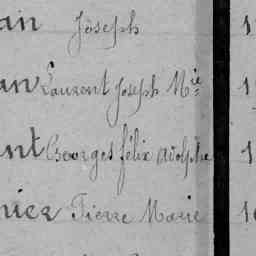 ain Joseph 1
an Laurent Joseph Mie 1
nt Georges félix adolphe 1
nier Pierre Marie 1